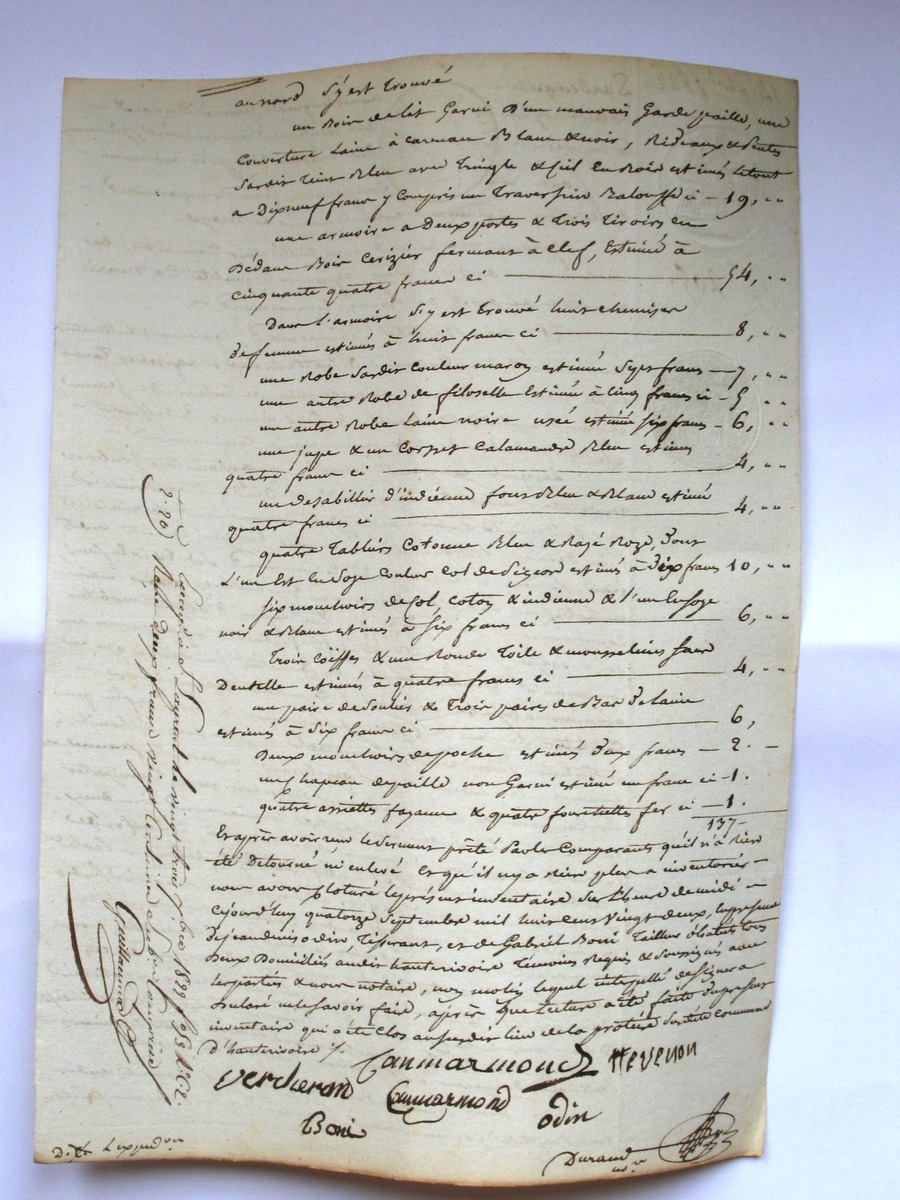 au nord s'y est trouvé
un Bois de lit Garni d'un mauvais Garde paille, une
Couverture Laine à carreau Blanc & noir, Rideaux & Pentes
Sardis teint Bleu avec tringle & fil en Bois estimés le tout
a Dixneuf francs y Compris un Traversin Balouffe ci - 19, ..
une armoire a Deux portes & Trois tiroirs en
Dédans Bois Cerizier fermant à clef, Estimée à
Cinquante quatre francs ci 54, ..
Dans l'armoire S'y est trouvé huit chemises
de femme estimés à huit francs ci 8, ..
une Robe Sardis Couleur maron estimée Sept francs - 7, ..
une autre Robe de filoselle Estimée à Cinq francs ci - 5 ..
une autre Robe Laine noire usée estimée Six francs - 6, ..
une jupe & un Corset Calamandre Bleu estimés
quatre francs ci 4, ..
un desabillér d'indienne fous Bleu & Blanc estimé
quatre francs ci 4, ..
quatre Tabliers Cotonne Bleu & Rayé Roze, dont
L'un Est en Soye Couleur Col de Pigeon estimés à Dix francs 10, ..
Six mouchoirs de Col, Coton & indienne & l'un en Soye
noir & Blanc estimés à Six francs ci 6, ..
Trois Coiffes & une Ronde Toile & mousselines Sans
Dentelle estimés à quatre francs ci 4, ..
une paire de Souliés & Trois paires de Bas de Laine
estimés à Six francs ci 6,
Deux mouchoirs de poche estimés Deux francs - 2. -
un Chapeau de paille non Garni estimé un franc ci - 1.
quatre assiettes fayance & quatre fourchettes fer ci - 1.
137 -
Et après avoir reçu le Serment prêté Par les Comparants qu'il n'a Rien
été Détourné ni enlevé Et qu'il n'y a Rien plus a inventorier
nous avons Cloturé le présent inventaire Sur L'heure de midi
Cejourd'huy quatorze Septembre mil huit Cent Vingt deux, En présence
de Jean Denis odin, Tisserant, et de Gabriel Boni Tailleur d'habits tous
Deux Domiciliés audit hauterivoire Témoins Requis & Soussignés avec
les parties & nous notaire, non lequel interpellé de Signer a
Déclaré ne le Savoir faire, après que Lecture a été faite Du présent
inventaire qui a été Clos au Susdit lieu de la Susdite Commune
D'hauterivoire ./.
Canmarmond Hevenon
Vercherand Canmarmond odin
Boni
Durand nre
D. Expedon
Enregé à St Laurent le vingt trois 7bre 1822
2.20) Reçu deux francs vingt centimes Subvon Comprise
Guillaume